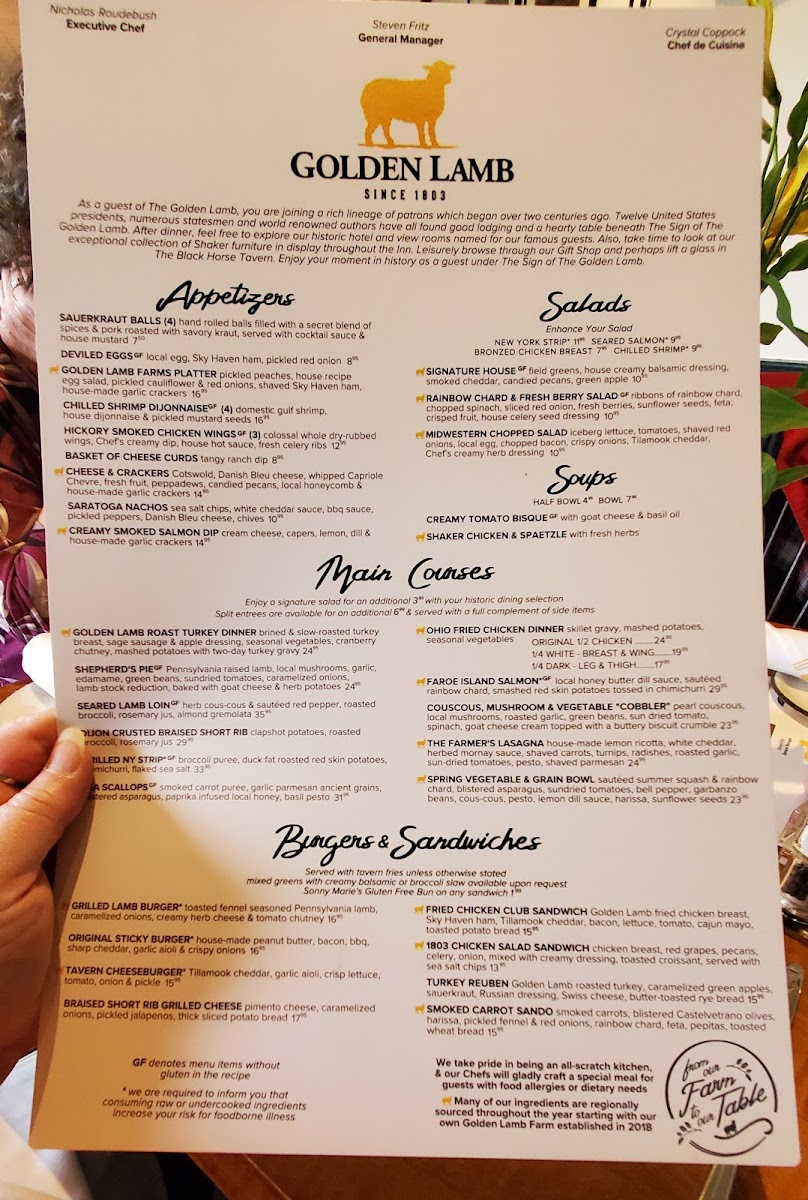 Nicholas Roudebush
Executive Chef
Steven Fritz
General Manager
Crystal Coppock
Chef de Cuisine
GOLDEN LAMB
SINCE 1803
As a guest of The Golden Lamb, you are joining a rich lineage of patrons which began over two centuries ago. Twelve United States
presidents, numerous statesmen and world renowned authors have all found good lodging and a hearty table beneath The Sign of The
Golden Lamb. After dinner, feel free to explore our historic hotel and view rooms named for our famous guests. Also, take time to look at our
exceptional collection of Shaker furniture in display throughout the Inn. Leisurely browse through our Gift Shop and perhaps lift a glass in
The Black Horse Tavern. Enjoy your moment in history as a guest under The Sign of The Golden Lamb.
Appetizers
SAUERKRAUT BALLS (4) hand rolled balls filled with a secret blend of
spices & pork roasted with savory kraut, served with cocktail sauce &
house mustard 7⁵⁰
DEVILED EGGS GF local egg, Sky Haven ham, pickled red onion 8⁹⁵
GOLDEN LAMB FARMS PLATTER pickled peaches, house recipe
egg salad, pickled cauliflower & red onions, shaved Sky Haven ham,
house-made garlic crackers 16⁹⁵
CHILLED SHRIMP DIJONNAISE GF (4) domestic gulf shrimp,
house dijonnaise & pickled mustard seeds 16⁹⁵
HICKORY SMOKED CHICKEN WINGS GF (3) colossal whole dry-rubbed
wings, Chef's creamy dip, house hot sauce, fresh celery ribs 12⁹⁵
BASKET OF CHEESE CURDS tangy ranch dip 8⁹⁵
CHEESE & CRACKERS Cotswold, Danish Bleu cheese, whipped Capriole
Chevre, fresh fruit, peppadews, candied pecans, local honeycomb &
house-made garlic crackers 14⁹⁵
SARATOGA NACHOS sea salt chips, white cheddar sauce, bbq sauce,
pickled peppers, Danish Bleu cheese, chives 10⁹⁵
CREAMY SMOKED SALMON DIP cream cheese, capers, lemon, dill &
house-made garlic crackers 14⁹⁵
Salads
Enhance Your Salad
NEW YORK STRIP* 11⁹⁵ SEARED SALMON* 9⁹⁵
BRONZED CHICKEN BREAST 7⁹⁵ CHILLED SHRIMP* 9⁹⁵
SIGNATURE HOUSE GF field greens, house creamy balsamic dressing,
smoked cheddar, candied pecans, green apple 10⁹⁵
RAINBOW CHARD & FRESH BERRY SALAD GF ribbons of rainbow chard,
chopped spinach, sliced red onion, fresh berries, sunflower seeds, feta,
crisped fruit, house celery seed dressing 10⁹⁵
MIDWESTERN CHOPPED SALAD iceberg lettuce, tomatoes, shaved red
onions, local egg, chopped bacon, crispy onions, Tilamook cheddar,
Chef's creamy herb dressing 10⁹⁵
Soups
HALF BOWL 4⁹⁵ BOWL 7⁹⁵
CREAMY TOMATO BISQUE GF with goat cheese & basil oil
SHAKER CHICKEN & SPAETZLE with fresh herbs
Main Courses
Enjoy a signature salad for an additional 3⁹⁵ with your historic dining selection
Split entrees are available for an additional 6⁹⁵ & served with a full complement of side items
GOLDEN LAMB ROAST TURKEY DINNER brined & slow-roasted turkey
breast, sage sausage & apple dressing, seasonal vegetables, cranberry
chutney, mashed potatoes with two-day turkey gravy 24⁹⁵
SHEPHERD'S PIE GF Pennsylvania raised lamb, local mushrooms, garlic,
edamame, green beans, sundried tomatoes, caramelized onions,
lamb stock reduction, baked with goat cheese & herb potatoes 24⁹⁵
SEARED LAMB LOIN GF herb cous-cous & sautéed red pepper, roasted
broccoli, rosemary jus, almond gremolata 35⁹⁵
DIJON CRUSTED BRAISED SHORT RIB clapshot potatoes, roasted
broccoli, rosemary jus 29⁹⁵
RILLED NY STRIP* GF broccoli puree, duck fat roasted red skin potatoes,
imichurri, flaked sea salt 33⁹⁵
A SCALLOPS GF smoked carrot puree, garlic parmesan ancient grains,
istered asparagus, paprika infused local honey, basil pesto 31⁹⁵
OHIO FRIED CHICKEN DINNER skillet gravy, mashed potatoes,
seasonal vegetables ORIGINAL 1/2 CHICKEN ........24⁹⁵
1/4 WHITE - BREAST & WING........19⁹⁵
1/4 DARK - LEG & THIGH........17⁹⁵
FAROE ISLAND SALMON* GF local honey butter dill sauce, sautéed
rainbow chard, smashed red skin potatoes tossed in chimichurri 29⁹⁵
COUSCOUS, MUSHROOM & VEGETABLE "COBBLER" pearl couscous,
local mushrooms, roasted garlic, green beans, sun dried tomato,
spinach, goat cheese cream topped with a buttery biscuit crumble 23⁹⁵
THE FARMER'S LASAGNA house-made lemon ricotta, white cheddar,
herbed mornay sauce, shaved carrots, turnips, radishes, roasted garlic,
sun-dried tomatoes, pesto, shaved parmesan 24⁹⁵
SPRING VEGETABLE & GRAIN BOWL sautéed summer squash & rainbow
chard, blistered asparagus, sundried tomatoes, bell pepper, garbanzo
beans, cous-cous, pesto, lemon dill sauce, harissa, sunflower seeds 23⁹⁵
Burgers & Sandwiches
Served with tavern fries unless otherwise stated
mixed greens with creamy balsamic or broccoli slaw available upon request
Sonny Marie's Gluten Free Bun on any sandwich 1⁹⁹
GRILLED LAMB BURGER* toasted fennel seasoned Pennsylvania lamb,
caramelized onions, creamy herb cheese & tomato chutney 16⁹⁵
ORIGINAL STICKY BURGER* house-made peanut butter, bacon, bbq,
sharp cheddar, garlic aioli & crispy onions 16⁹⁵
TAVERN CHEESEBURGER* Tillamook cheddar, garlic aioli, crisp lettuce,
tomato, onion & pickle 15⁹⁵
BRAISED SHORT RIB GRILLED CHEESE pimento cheese, caramelized
onions, pickled jalapenos, thick sliced potato bread 17⁹⁵
FRIED CHICKEN CLUB SANDWICH Golden Lamb fried chicken breast,
Sky Haven ham, Tillamook cheddar, bacon, lettuce, tomato, cajun mayo,
toasted potato bread 15⁹⁵
1803 CHICKEN SALAD SANDWICH chicken breast, red grapes, pecans,
celery, onion, mixed with creamy dressing, toasted croissant, served with
sea salt chips 13⁹⁵
TURKEY REUBEN Golden Lamb roasted turkey, caramelized green apples,
sauerkraut, Russian dressing, Swiss cheese, butter-toasted rye bread 15⁹⁵
SMOKED CARROT SANDO smoked carrots, blistered Castelvetrano olives,
harissa, pickled fennel & red onions, rainbow chard, feta, pepitas, toasted
wheat bread 15⁹⁵
GF denotes menu items without
gluten in the recipe
* we are required to inform you that
consuming raw or undercooked ingredients
increase your risk for foodborne illness
We take pride in being an all-scratch kitchen,
& our Chefs will gladly craft a special meal for
guests with food allergies or dietary needs
Many of our ingredients are regionally
sourced throughout the year starting with our
own Golden Lamb Farm established in 2018
from
our
Farm
to
our
Table